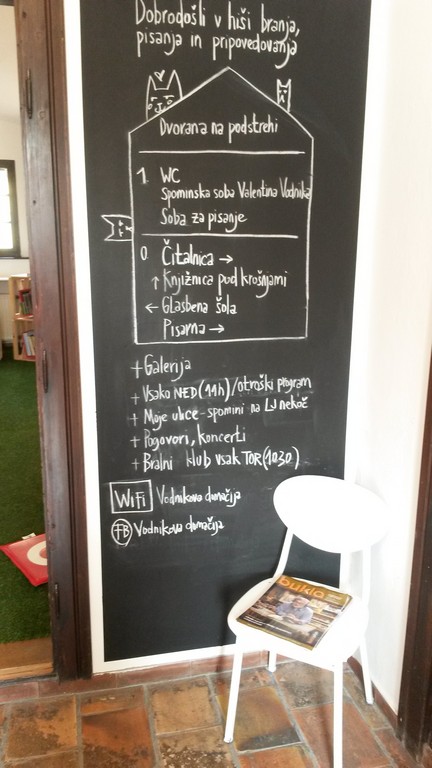 Dobrodošli v hiši branja,
pisanja in pripovedovanja
Dvorana na podstrehi
1. WC
Spominska soba Valentina Vodnika
Soba za pisanje
0. Čitalnica →
↑ Knjižnica pod krošnjami
← Glasbena šola
Pisarna →
+ Galerija
+ Vsako NED (11h)/otroški program
+ Moje ulice - spomini na LJ nekoč
+ Pogovori, koncerti
+ Bralni klub vsak TOR (10.30)
WiFi Vodnikova domačija
FB Vodnikova domačija
bukla